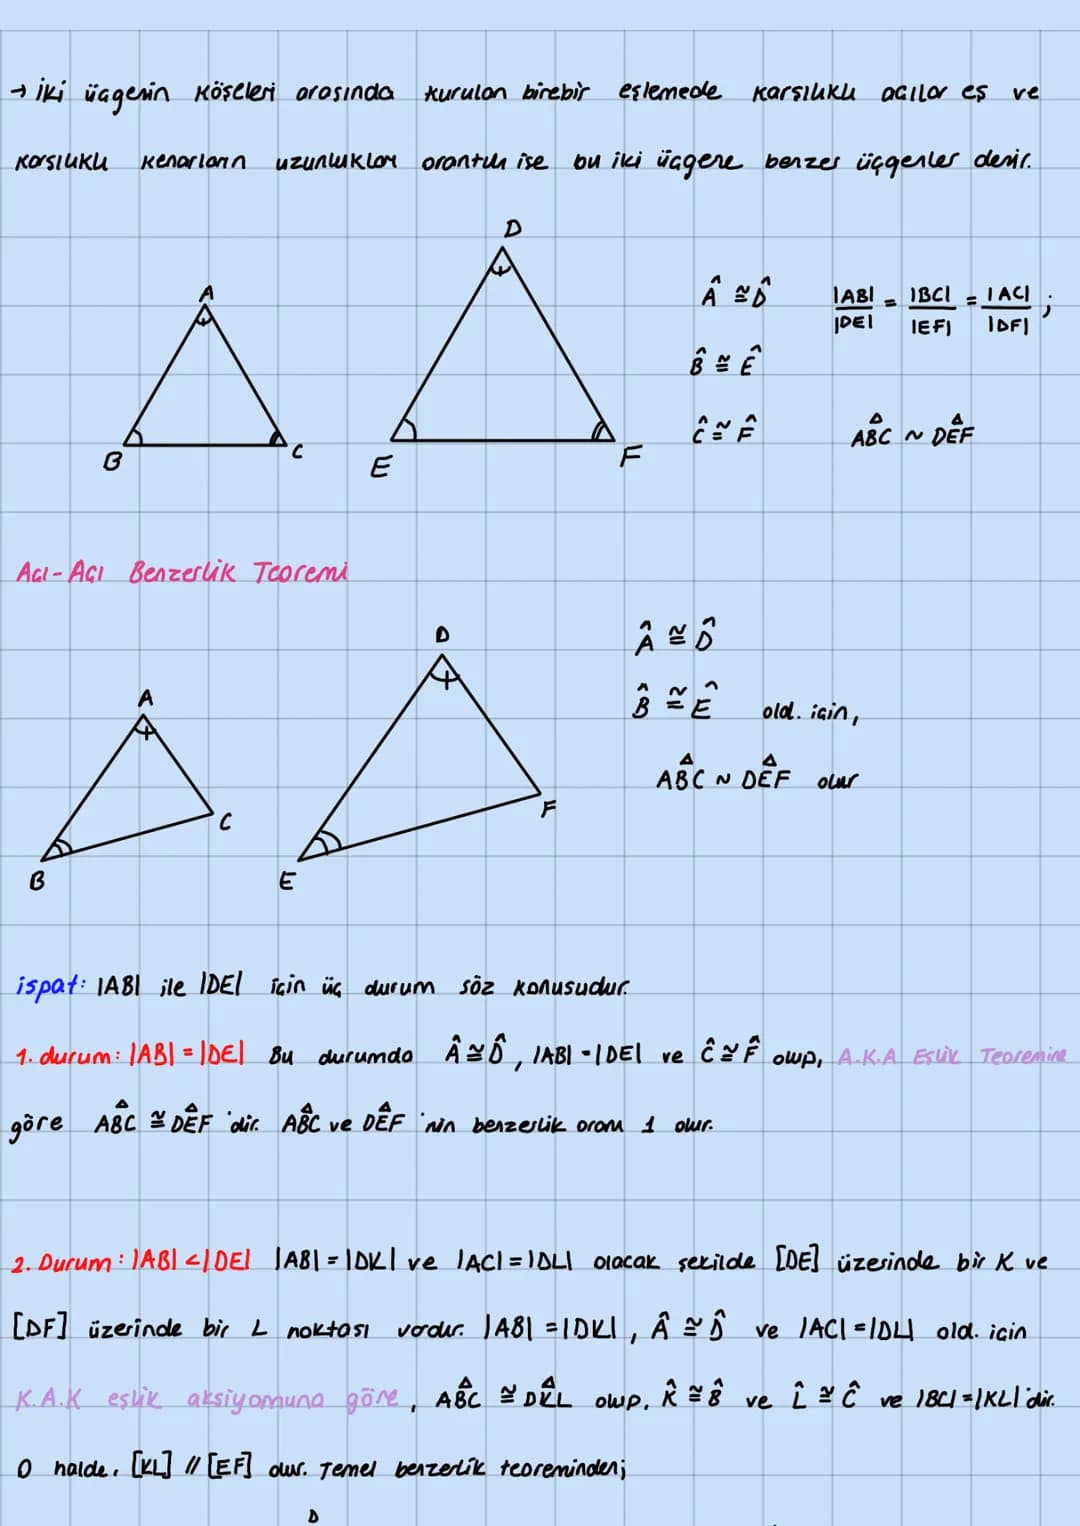 → iki üçgenin köşeleri arasında kurulan birebir eşlemede karşılıklı açılar eş ve
karşılıklı kenarların uzunlukları orantılı ise bu iki üçgene benzer üçgenler denir.
D
A
B
C
E
F
Â ≅ D̂
|AB|/|DE| = |BC|/|EF| = |AC|/|DF| ;
B̂ ≅ Ê
Ĉ ≅ F̂
ABC ~ DEF
Açı-Açı Benzerlik Teoremi
D
A
C
F
B
E
Â ≅ D̂
B̂ ≅ Ê old. için,
ABC ~ DEF olur
ispat: |AB| ile |DE| için üç durum söz konusudur.
1. durum: |AB| = |DE| Bu durumda Â ≅ D̂, |AB| = |DE| ve Ĉ ≅ F̂ olup, A.K.A Eşlik Teoremine
göre ABC ≅ DEF 'dir. ABC ve DEF 'nin benzerlik oranı 1 olur.
2. Durum: |AB| < |DE| |AB| = |DK| ve |AC| = |DL| olacak şekilde [DE] üzerinde bir K ve
[DF] üzerinde bir L noktası vardır. |AB| = |DK|, Â ≅ D̂ ve |AC| = |DL| old. için
K.A.K eşlik aksiyomuna göre, ABC ≅ DKL olup, K̂ ≅ B̂ ve L̂ ≅ Ĉ ve |BC| = |KL|'dir.
O halde, [KL] // [EF] olur. Temel benzerlik teoreminden;
D